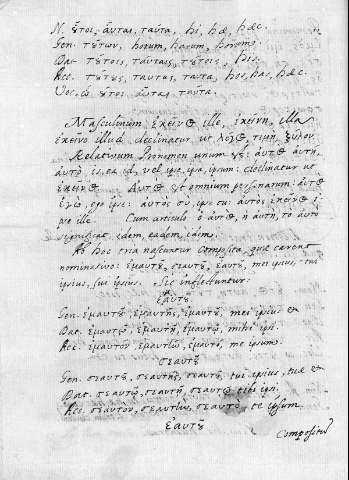 N. οὗτοι, αὗται, ταῦτα, hi, hæ, hæc.
Gen. τούτων, horum, harum, horum.
Dat. τούτοις, ταύταις, τούτοις, his.
Acc. τούτους, ταύτας, ταῦτα, hos, has, hæc.
Voc. ὦ οὗτοι, αὗται, ταῦτα.
Masculinum ἐκεῖνος ille, ἐκείνη, illa
ἐκεῖνο illud declinatur ut λόγος, τιμή, ξύλον.
Relativum Pronomen unum αὐτός αὐτή,
αὐτό is, ea id, vel ipse, ipsa, ipsum: declinatur ut
ἐκεῖνος. Αὐτός est omnium personarum: αὐτός
ἐγώ, ego ipse: αὐτός σύ, ipse tu: αὐτός ἐκεῖνος i-
pse ille. Cum articulo ὁ αὐτός, ἡ αὐτή, το αὐτό
significat idem, eadem, idem.
Ab hoc tria nascuntur Composita, quæ carent
nominativo: ἐμαυτοῦ, σεαυτοῦ, ἑαυτοῦ, mei ipsius, tui
ipsius, sui ipsius. Sic inflectuntur:
Gen. ἐμαυτοῦ, ἐμαυτῆς, ἐμαυτοῦ, mei ipsius
Dat. ἐμαυτῷ, ἐμαυτῇ, ἐμαυτῷ, mihi ipsi.
Acc. ἐμαυτόν, ἐμαυτήν, ἐμαυτό, me ipsum.
σεαυτοῦ
Gen. σεαυτοῦ, σεαυτῆς, σεαυτοῦ, tui ipsius, tuæ
Dat. σεαυτῷ, σεαυτῇ, σεαυτῷ tibi ipsi.
Acc. σεαυτόν, σεαυτήν, σεαυτό te ipsum.
ἑαυτοῦ